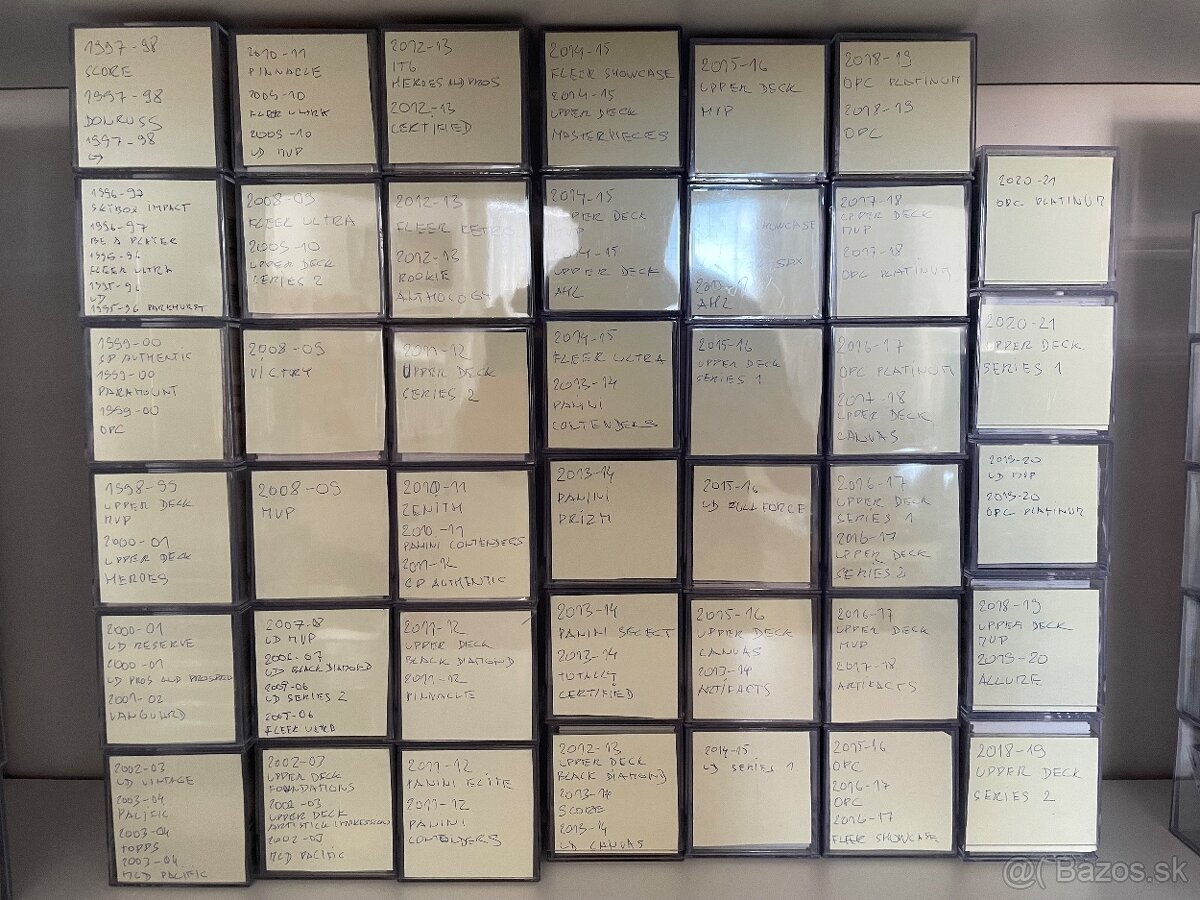 1997-98
SCORE
1997-98
DONRUSS
1997-98
1996-97
SKYBOX IMPACT
1996-97
BE A PLAYER
FLEER ULTRA
UD
1995-96 PARKHURST
1999-00
SP AUTHENTIC
1999-00
PARAMOUNT
1999-00
OPC
1998-99
UPPER DECK
MVP
2000-01
UPPER DECK
HEROES
2000-01
UD RESERVE
2000-01
UD PROS AND PROSPECTS
2001-02
VANGUARD
2002-03
UD VINTAGE
2003-04
PACIFIC
2003-04
TOPPS
2003-04
MCD PACIFIC
2010-11
PINNACLE
2009-10
FLEER ULTRA
2009-10
UD MVP
2008-09
FLEER ULTRA
2009-10
UPPER DECK
SERIES 2
2008-09
VICTORY
2008-09
MVP
2007-08
UD MVP
2006-07
UD BLACK DIAMOND
2005-06
UD SERIES 2
2005-06
FLEER ULTRA
2002-03
UPPER DECK
FOUNDATIONS
2002-03
UPPER DECK
2002-03
MCD PACIFIC
2012-13
ITG
HEROES AND PROS
2012-13
CERTIFIED
2012-13
FLEER RETRO
2012-13
ROOKIE
ANTHOLOGY
2011-12
UPPER DECK
SERIES 2
2010-11
ZENITH
2010-11
PANINI CONTENDERS
2011-12
SP AUTHENTIC
2011-12
UPPER DECK
BLACK DIAMOND
2011-12
PINNACLE
2011-12
PANINI ELITE
2011-12
PANINI
CONTENDERS
2014-15
FLEER SHOWCASE
2014-15
UPPER DECK
MASTERPIECES
2014-15
UPPER DECK
MVP
2014-15
UPPER DECK
AHL
2014-15
FLEER ULTRA
2013-14
PANINI
CONTENDERS
2013-14
PANINI
PRIZM
2013-14
PANINI SELECT
2013-14
TOTALLY
CERTIFIED
2012-13
UPPER DECK
BLACK DIAMOND
2013-14
SCORE
2013-14
UD CANVAS
2015-16
UPPER DECK
MVP
SHOWCASE
SPX
AHL
2015-16
UPPER DECK
SERIES 1
2015-16
UD FULL FORCE
2015-16
UPPER DECK
CANVAS
2013-14
ARTIFACTS
2014-15
UD SERIES 1
2018-19
OPC PLATINUM
2018-19
OPC
2017-18
UPPER DECK
MVP
2017-18
OPC PLATINUM
2016-17
OPC PLATINUM
2017-18
UPPER DECK
CANVAS
2016-17
UPPER DECK
SERIES 1
2016-17
UPPER DECK
SERIES 2
2016-17
UPPER DECK
MVP
2017-18
ARTIFACTS
2015-16
OPC
2016-17
OPC
2016-17
FLEER SHOWCASE
2020-21
OPC PLATINUM
2020-21
UPPER DECK
SERIES 1
2019-20
UD MVP
2019-20
OPC PLATINUM
2018-19
UPPER DECK
MVP
2019-20
ALLURE
2018-19
UPPER DECK
SERIES 2
@( Bazos.sk